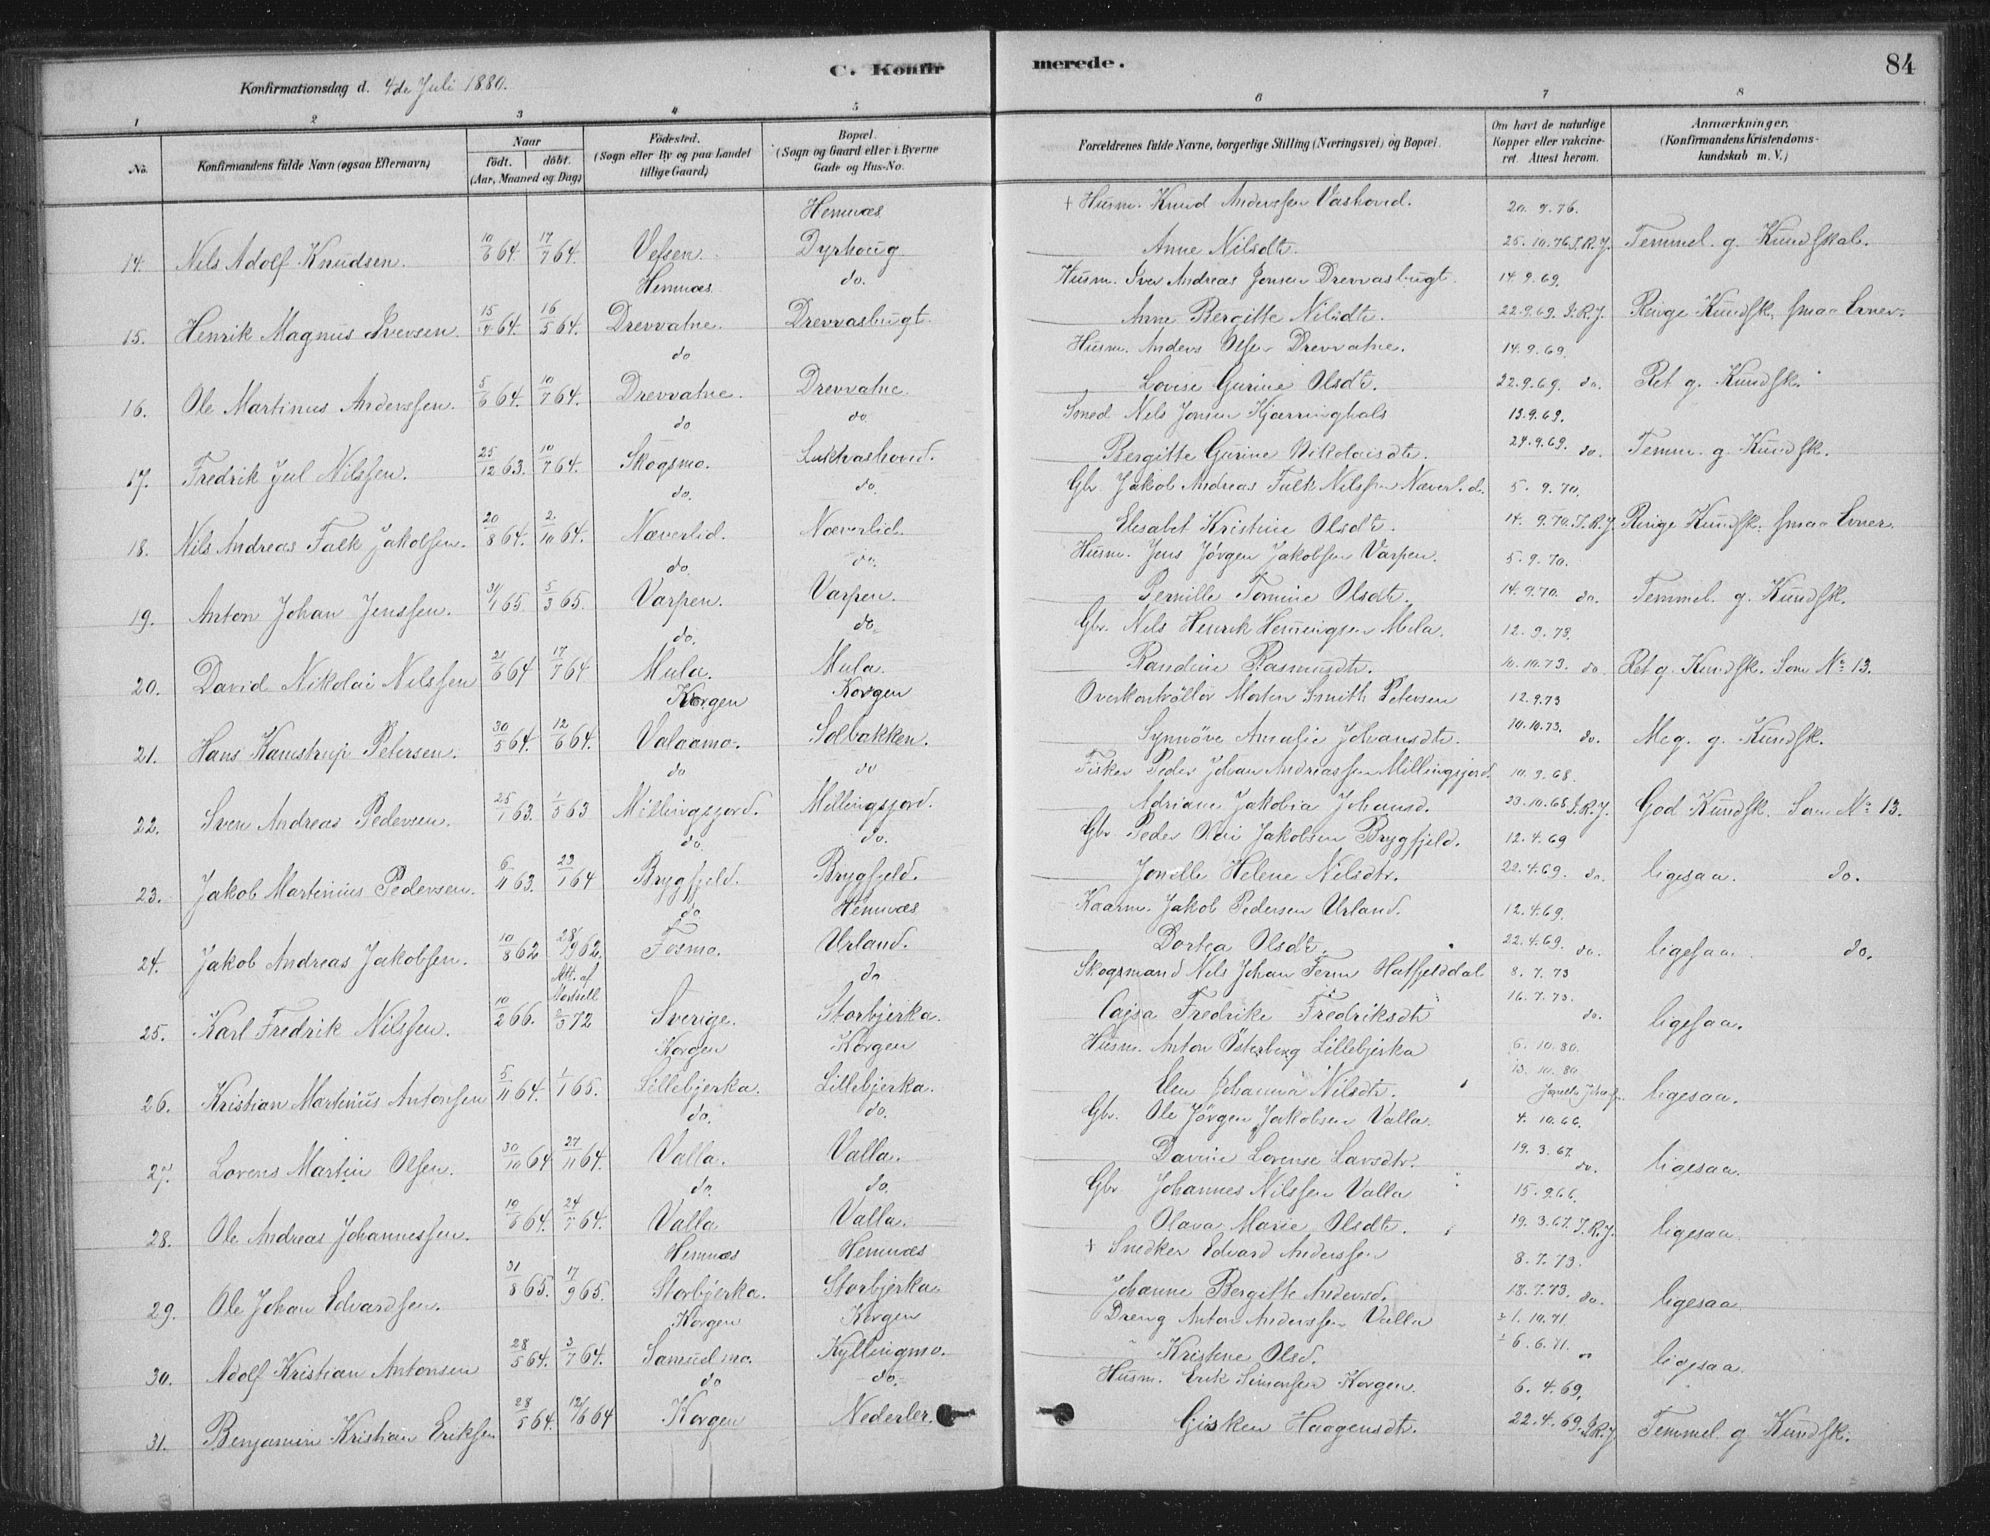 Konfirmationsdag d. 4de Juli 1880.
C. Konfirmerede.
84
1 2 3 4 5 6 7 8
No.
Konfirmandens fulde Navn (ogsaa Efternavn)
Naar født. døbt. (Aar, Maaned og Dag)
Fødested. (Sogn eller By og paa Landet tillige Gaard)
Bopæl. (Sogn og Gaard eller i Byerne Gade og Hus-No.
Forældrenes fulde Navne, borgerlige Stilling (Næringsvei) og Bopæl.
Om havt de naturlige Kopper eller vakcineret. Attest herom.
Anmærkninger. (Konfirmandens Kristendomskundskab m. V.)
Hemnæs + Husm. Knud Anderssen Vashoved. 20.9.76.
14. Nils Adolf Knudsen. 10/6 64. 17/7 64. Vefsen. Dyrhoug. Anne Nilsdtr. 25.10.76 J.R.J. Temmel. g. Kundskab.
Hemnæs. do. Husm. Iver Andreas Jonsen Drevvasbugt. 14.9.69.
15. Henrik Magnus Iversen. 15/4 64. 16/5 64. Drevvatne. Drevvasbugt. Anne Bergitte Nilsdtr. 22.9.69. J.R.J. Ringe Kundsk. smaa Evner.
do Husm. Anders Olsen Drevvatne. 14.9.69.
16. Ole Martinus Anderssen. 5/6 64. 10/7 64. Drevvatne. Drevvatne. Lovise Gurine Olsdtr. 22.9.69. do. Ret g. Kundsk.
do do Smed Nels Jonsen Kjærringhals 13.9.69.
17. Fredrik Jul Nilssen. 25/12 63. 10/7 64. Skogsmo. Luktvashoved. Bergitte Gurine Nikolaisdtr. 24.9.69. do. Temm. g. Kundsk.
do. do. Gbr. Jakob Andreas Falk Nilssen Næverlid. 5.9.70.
18. Nils Andreas Falk Jakobsen. 20/8 64. 2/10 64. Næverlid. Næverlid. Elesabet Kristine Olsdtr. 14.9.70. J.R.J. Ringe Kundsk. smaa Evner.
do. do. Husm. Jens Jørgen Jakobsen Varpen. 5.9.70.
19. Anton Johan Jenssen. 31/1 65. 5/3 65. Varpen. Varpen. Pernille Tomine Olsdtr. 14.9.70. do. Temmel. g. Kundsk.
do. do. Gbr. Nils Henrik Hemingsen Mula. 12.9.73.
20. David Nikolai Nilssen 21/6 64 17/7 64 Mula. Mula. Randine Rasmusdtr. 10.10.73. do Ret g. Kundsk. Som No. 13.
Korgen Korgen Overkontrollør Morten Smith Petersen 12.9.73
21. Hans Kamstrup Petersen. 30/5 64. 12/6 64. Valaamo. Solbakken. Synnøve Amalie Johansdtr. 10.10.73. do. Meg. g. Kundsk.
do do Fisker Peder Johan Andreassen Millingsjord. 10.9.68.
22. Sven Andreas Pedersen. 25/1 63. 1/5 63 Millingsjord. Millingsjord. Adriane Jakobia Johansd. 23.10.68 J.R.J. God Kundsk. Som No. 13.
do. do. Gbr Peder Kai Jakobsen Brygfjeld. 12.4.69
23. Jakob Martinius Pedersen. 6/11 63. 23/1 64 Brygfjeld. Brygfjeld. Jonelle Helene Nilsdtr. 22.4.69. do. ligesaa. do.
do Hemnæs Kaarm. Jakob Pedersen Urland. 12.4.69.
24. Jakob Andreas Jakobsen. 10/8 62 28/9 62. Fosmo. Urland. Dortea Olsdtr. 22.4.69. do. ligesaa. do.
Att. af do Skogsmand Nils Johan Ferm Hatfjelddal 8.7.73
25. Karl Fredrik Nilssen. 10/2 66. 72 Sverige. Storbjerka. Cajsa Fredrike Fredriksdtr 16.7.73. do. ligesaa.
Korgen Korgen Husm. Anton Østerberg Lillebjerka 6.10.80.
26. Kristian Martinus Antonsen 5/11 64. 1/1 65. Lillebjerka. Lillebjerka. Elen Johanna Nilsdtr. 13.10.80 ligesaa.
do. do. Gbr. Ole Jørgen Jakobsen Valla. 4.10.66.
27. Lorens Martin Olsen. 30/10 64 27/11 64. Valla. Valla. Davine Lorense Larsdtr. 19.3.67. do. ligesaa.
do. do. Gbr Johannes Nilssen Valla 15.9.66.
28. Ole Andreas Johannessen. 10/6 64. 24/7 64. Valla Valla. Olava Marie Olsdtr. 19.3.67. J.R.J. ligesaa.
Hemnæs Hemnæs + Snedker Edvard Anderssen 8.7.73.
29. Ole Johan Edvardsen. 31/8 65. 17/9 65. Storbjerka. Storbjerka. Johanne Bergitte Andersd. 18.7.73. do. ligesaa
Korgen Korgen Dreng Anton Anderssen Valla 1.10.71.
30. Adolf Kristian Antonsen 28/5 64. 3/7 64. Samuelmo. Kyllingmo. Kristine Olsd. 6.6.71. ligesaa
do do. Husm. Erik Simonsen Korgen. 6.4.69.
31. Benjamin Kristian Eriksen 28/5 64. 12/6 64 Korgen Nederler. Gisken Haagensdtr. 22.4.69. J.R.J. Temmel. g. Kundsk.